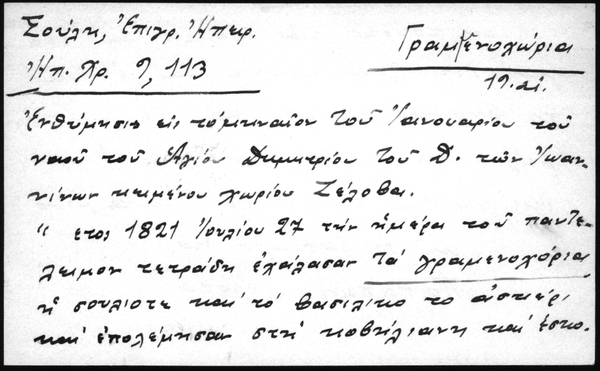 Σούλη, Ἐπιγρ. Ἠπειρ.
Γραμμενοχώρια
Ἠπ. Χρ. 9, 113
19. αἰ.
Ἐνθύμησις εἰς τό μηναῖον τοῦ Ἰανουαρίου τοῦ
ναοῦ τοῦ Ἁγίου Δημητρίου τοῦ Δ. τῶν Ἰωαν-
νίνων κειμένου χωρίου Ζέλοβα.
" ετος 1821 Ἰουλίου 27 τήν ἡμέρα τοῦ παντε-
λειμον τετράδη ἐχάλασαν τά γραμενοχόρια
ἡ σουλιοτε καί τό βασιλικο το ἀσκέρι
καί ἐπολέμησαν στή κοβήλιανη καί ἐσκο-